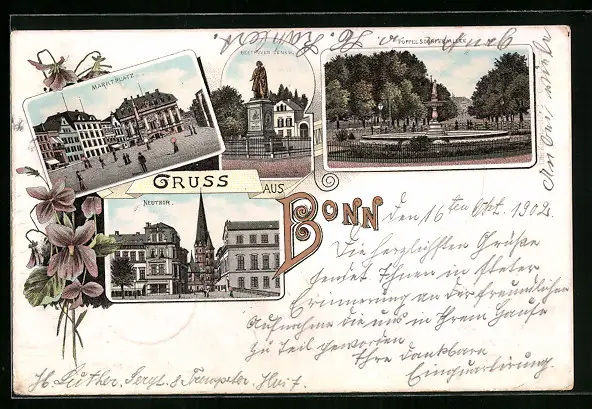 MARKTPLATZ.
BEETHOVEN DENKMAL
POPPELSDORFER ALLEE
GRUSS AUS BONN
NEUTHOR.
den 16ten Okt. 1902.
Die herzlichsten Grüße
sendet Ihnen in steter
Erinnerung an der freundlichen
Aufnahme die uns in Ihrem Hause
zu teil geworden
Ihre dankbare
Einquartierung.
H. Luther, Sergt. & Trompeter